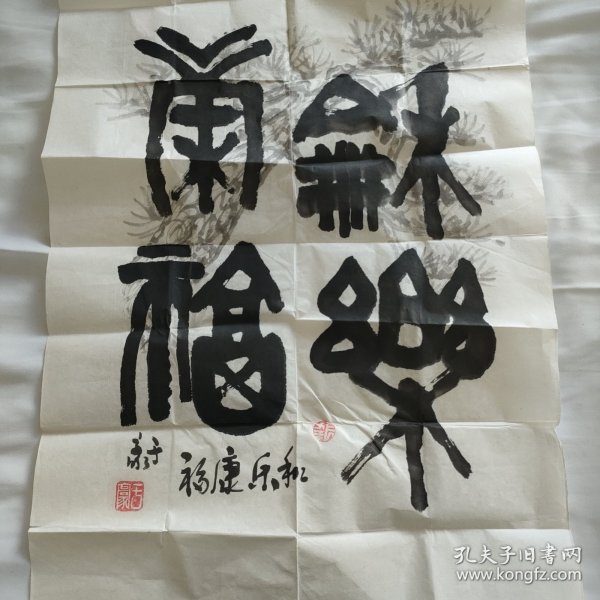 龢樂
康福
和乐康福
孔夫子旧书网
www.kongfz.com